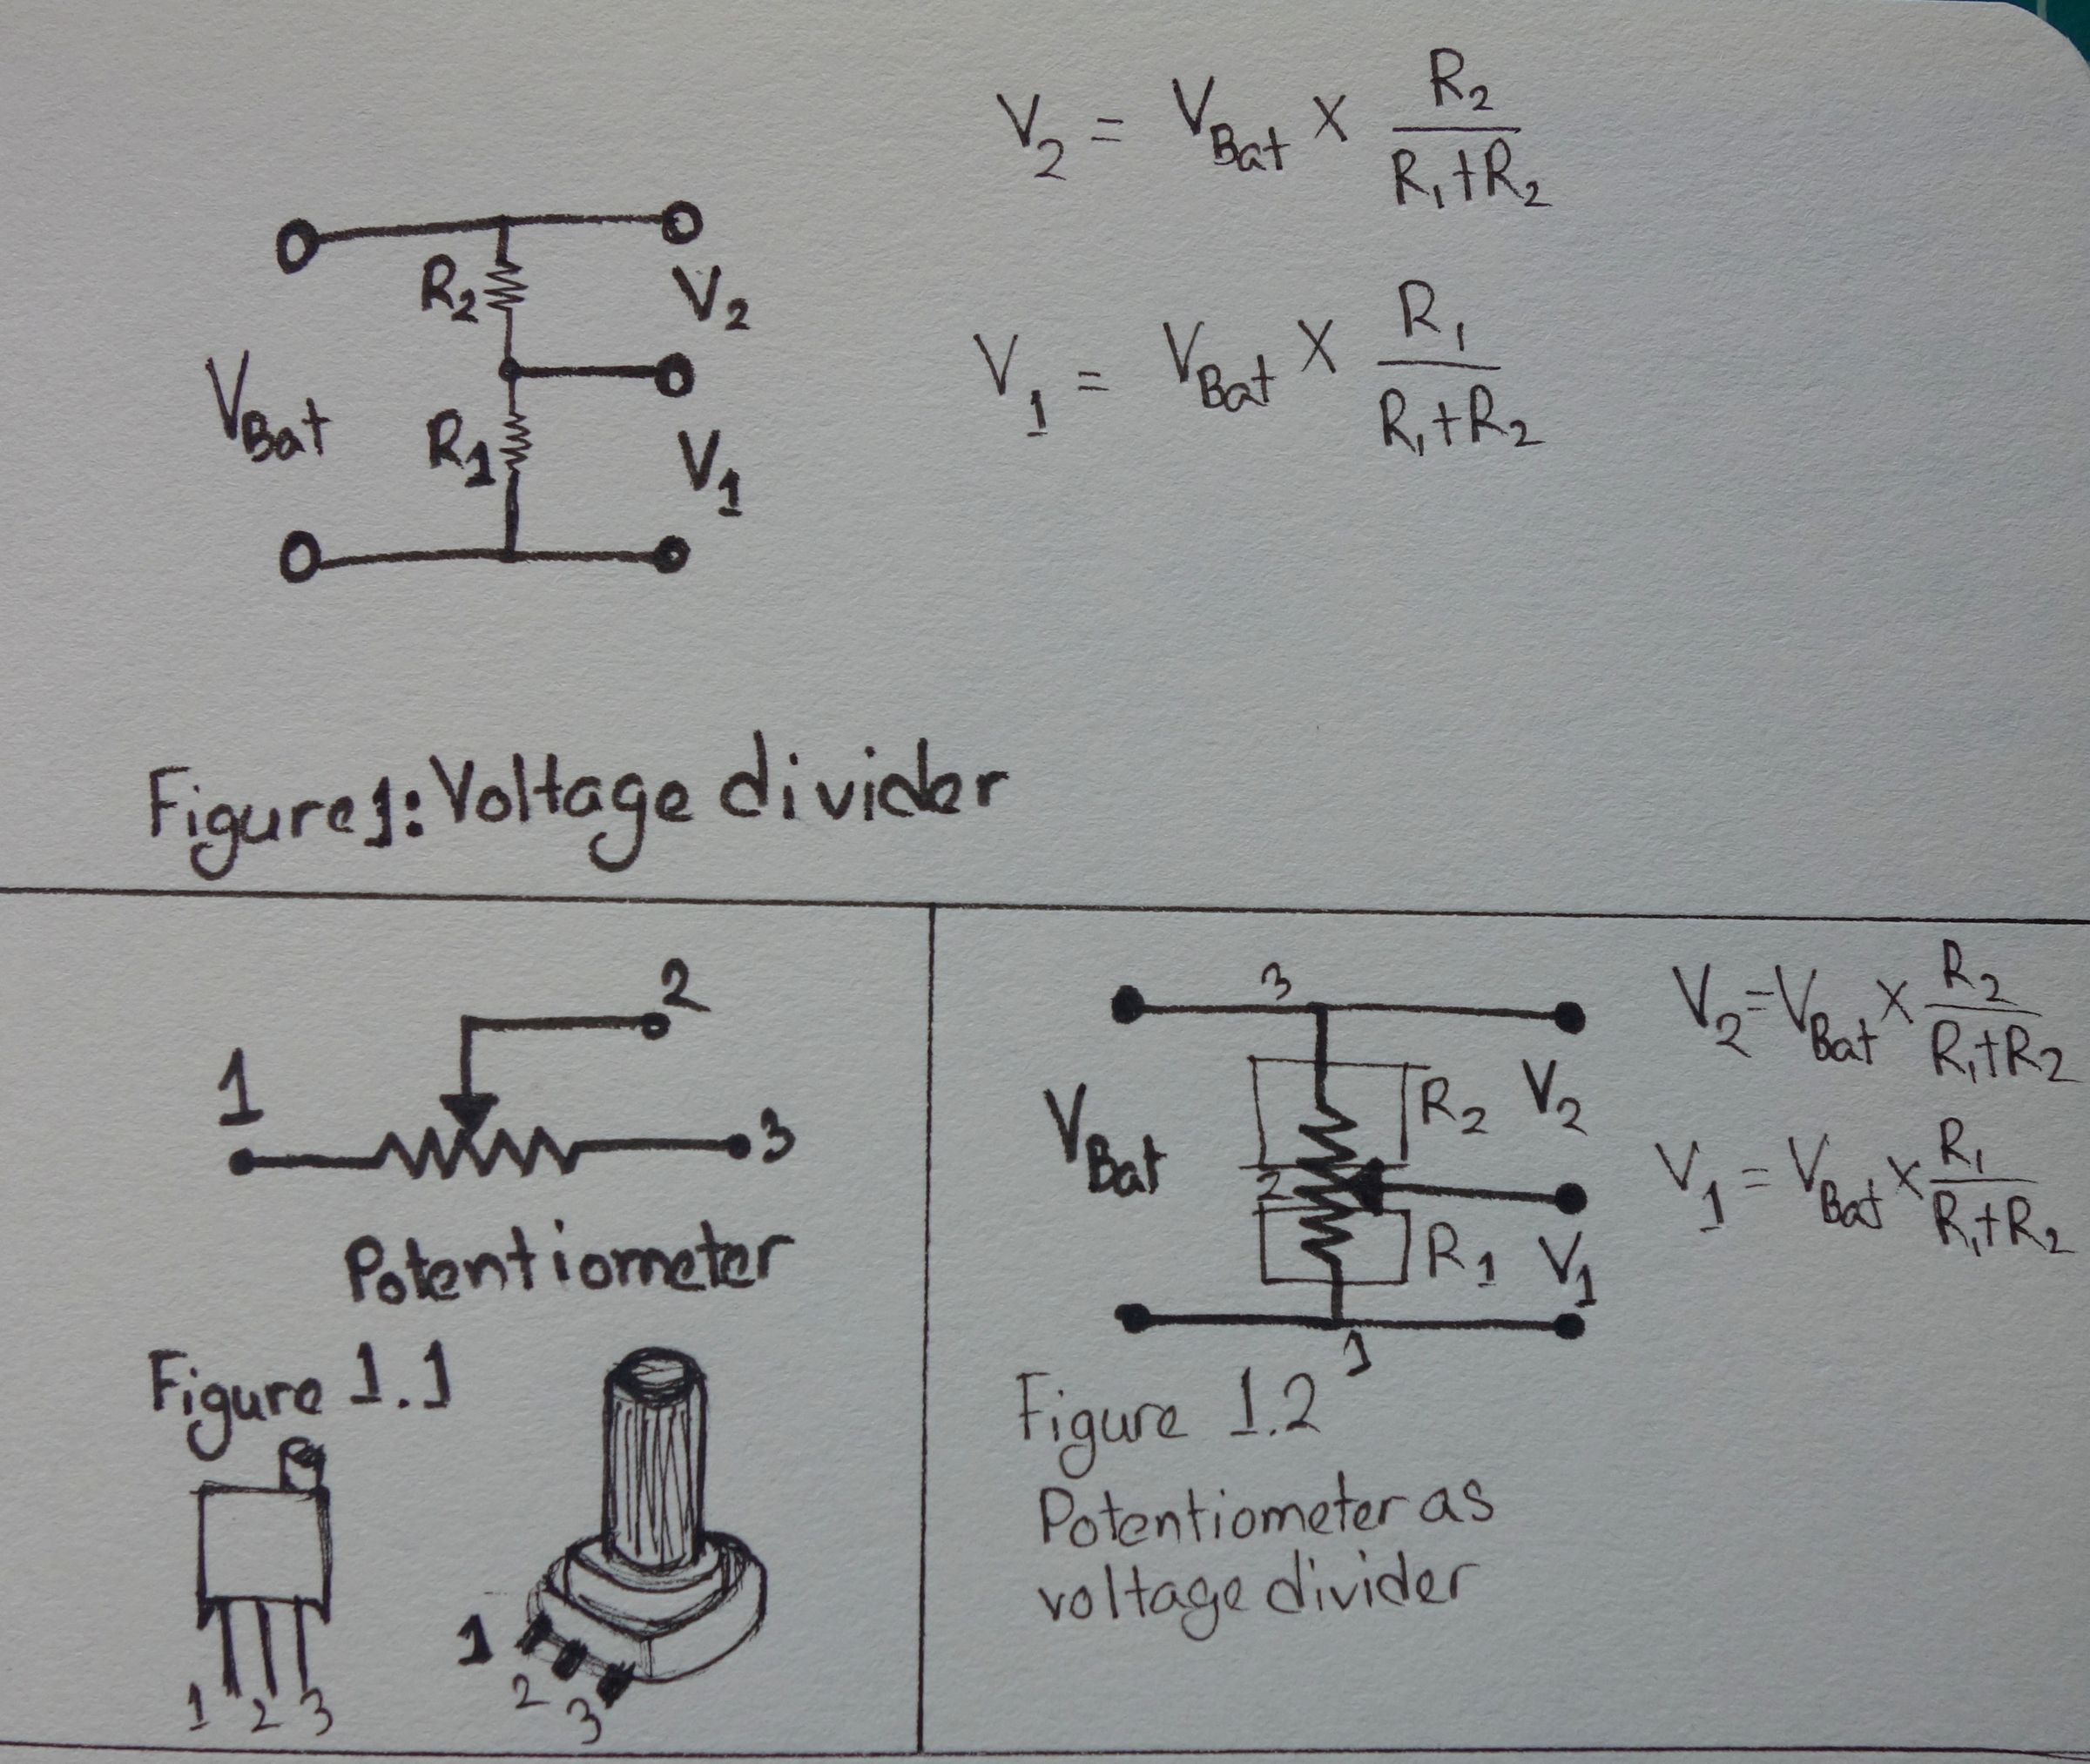 V₂ = V_Bat × R₂ / (R₁+R₂)
V₁ = V_Bat × R₁ / (R₁+R₂)
R₂
V₂
V_Bat
R₁
V₁
Figure 1: Voltage divider
2
1
3
Potentiometer
Figure 1.1
1 2 3
1
2
3
3
V₂ = V_Bat × R₂ / (R₁+R₂)
R₂ V₂
V_Bat
2
V₁ = V_Bat × R₁ / (R₁+R₂)
R₁ V₁
1
Figure 1.2
Potentiometer as
voltage divider